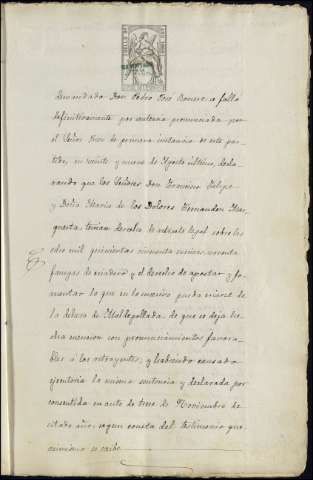 demandada Don Pedro José Bonere se falló
definitivamente por sentencia pronunciada por
el Señor Juez de primera instancia de este par-
tido, en veinte y nueve de Agosto último, decla-
rando que los Señores Don Francisco Felipe
y Doña María de los Dolores Hernandez
tenian derecho de retracto legal sobre los
ocho mil quinientas cincuenta
fanegas de y el derecho de apostar y fo-
mentar lo que en lo sucesivo pueda criarse
la dehesa de Matdepollada, de que se deja he-
cha mencion con pronunciamientos favora-
bles á los retrayentes; y habiendo causado
ejecutoria la misma sentencia y declarada por
consentida en auto de trece de Noviembre de
citado año, segun consta del testimonio que
asimismo se exibe